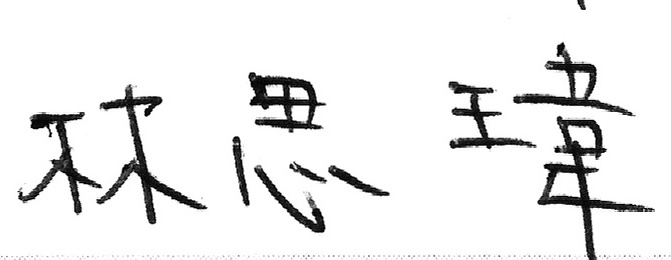 林思瑋